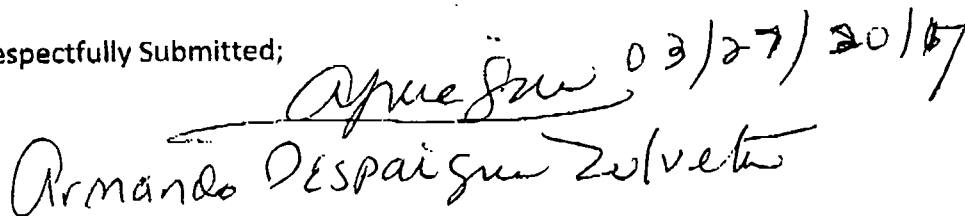 espectfully Submitted;
03/27/2017
Armando Despaigne Zulveta